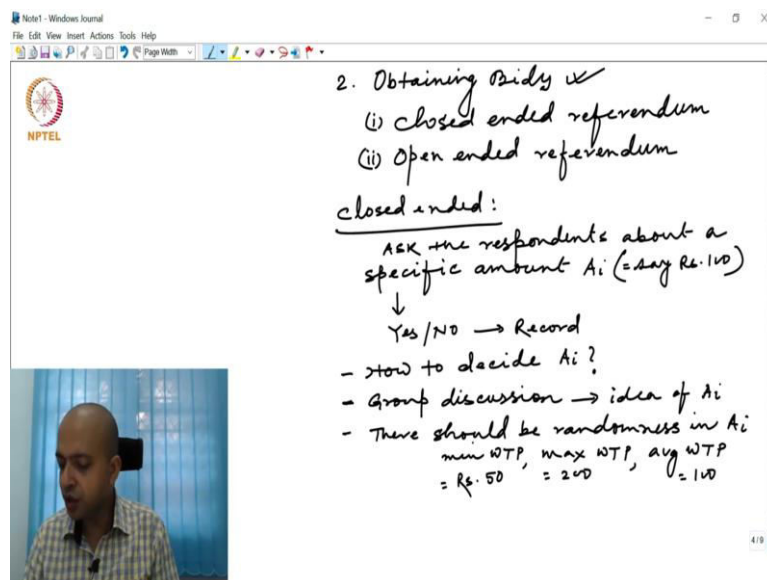 Note1 - Windows Journal
File Edit View Insert Actions Tools Help
Page Width
NPTEL
2. Obtaining Bids
(i) closed ended referendum
(ii) Open ended referendum
closed ended:
ASK the respondents about a
specific amount Ai (= say Rs. 100)
Yes/NO → Record
- How to decide Ai?
- Group discussion → idea of Ai
- There should be randomness in Ai
min WTP, max WTP, avg WTP
= Rs. 50 = 200 = 100
4/9